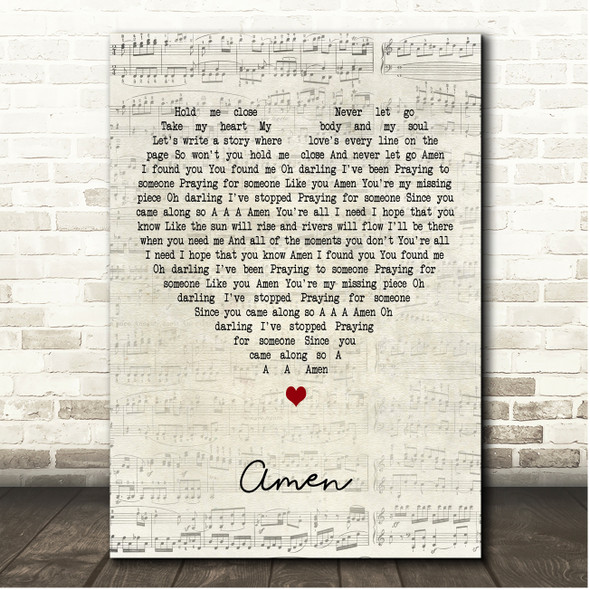 Hold me close Never let go
Take my heart My body and my soul
Let's write a story where love's every line on the
page So won't you hold me close And never let go Amen
I found you You found me Oh darling I've been Praying to
someone Praying for someone Like you Amen You're my missing
piece Oh darling I've stopped Praying for someone Since you
came along so A A A Amen You're all I need I hope that you
know Like the sun will rise and rivers will flow I'll be there
when you need me And all of the moments you don't You're all
I need I hope that you know Amen I found you You found me
Oh darling I've been Praying to someone Praying for
someone Like you Amen You're my missing piece Oh
darling I've stopped Praying for someone
Since you came along so A A A Amen Oh
darling I've stopped Praying
for someone Since you
came along so A
A A Amen
Amen